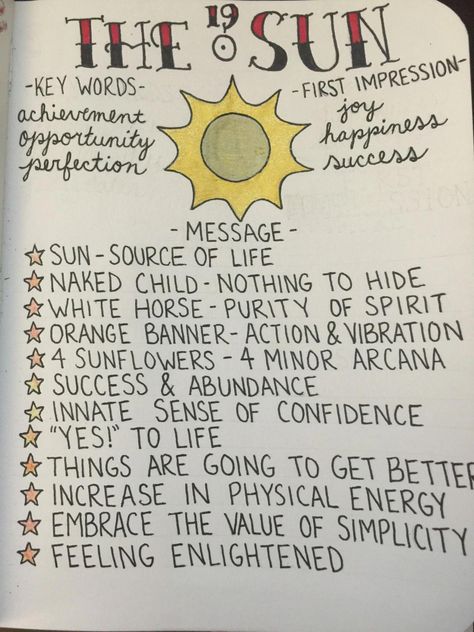 THE 19 SUN
- KEY WORDS -
achievement
opportunity
perfection
- FIRST IMPRESSION -
joy
happiness
success
- MESSAGE -
SUN - SOURCE OF LIFE
NAKED CHILD - NOTHING TO HIDE
WHITE HORSE - PURITY OF SPIRIT
ORANGE BANNER - ACTION & VIBRATION
4 SUNFLOWERS - 4 MINOR ARCANA
SUCCESS & ABUNDANCE
INNATE SENSE OF CONFIDENCE
"YES!" TO LIFE
THINGS ARE GOING TO GET BETTER
INCREASE IN PHYSICAL ENERGY
EMBRACE THE VALUE OF SIMPLICITY
FEELING ENLIGHTENED